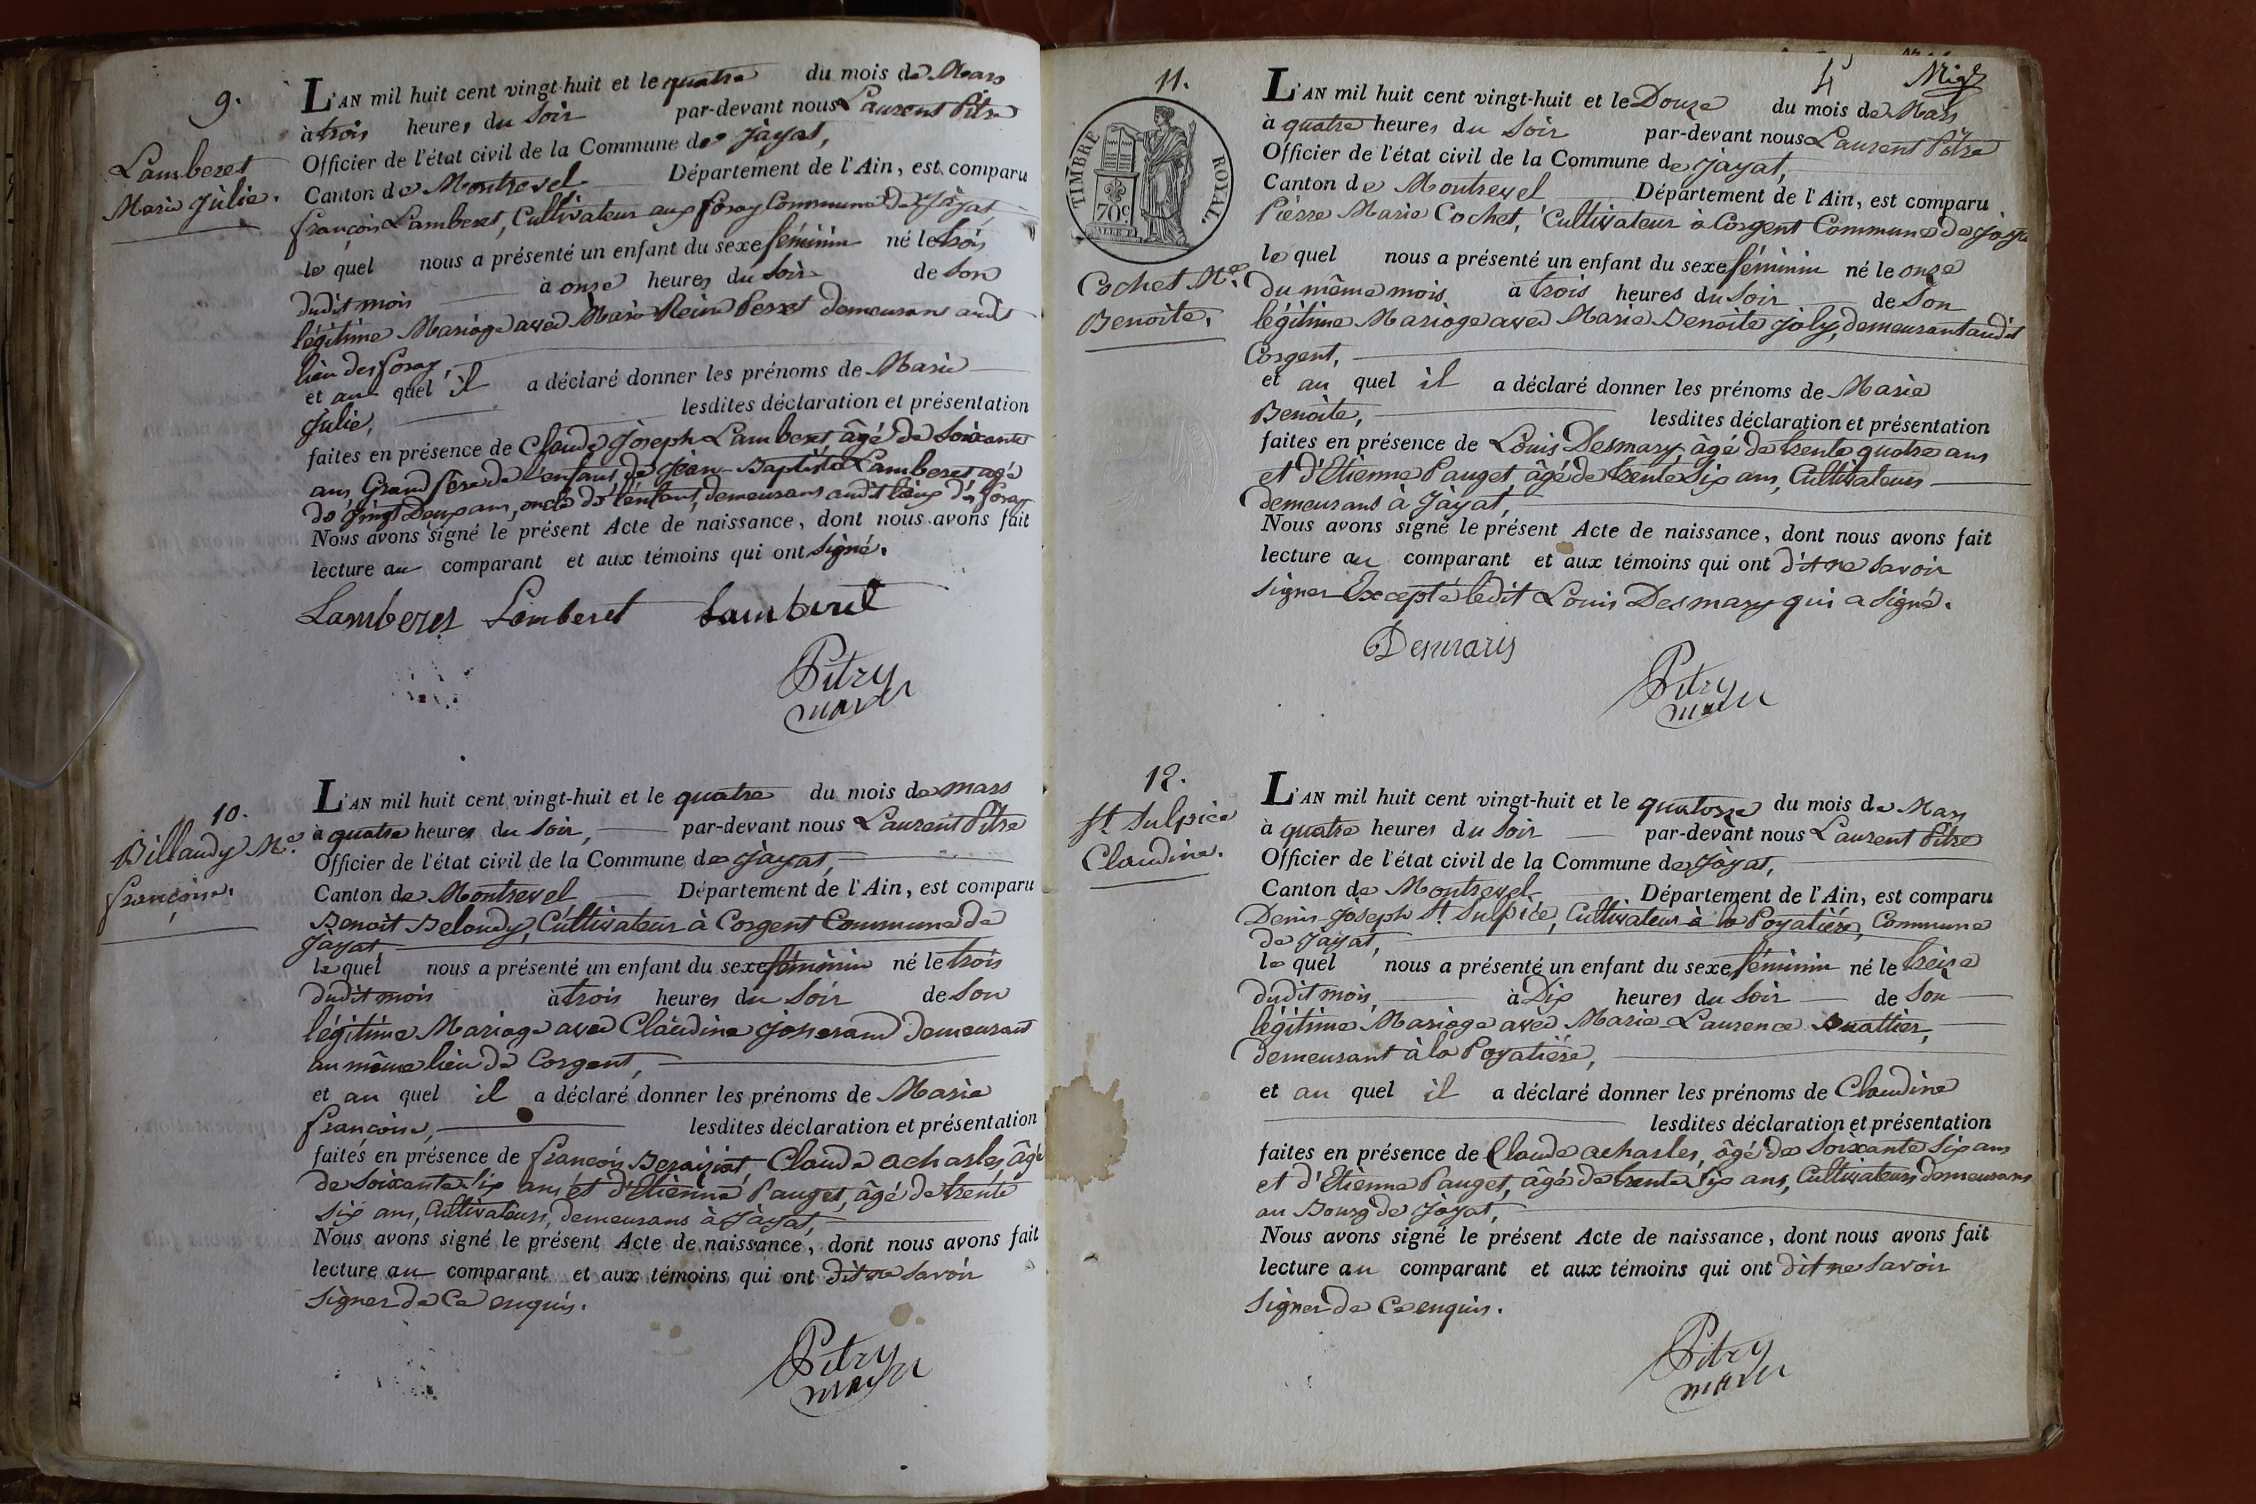 9.
Lamberet
Marie Julie.
L'AN mil huit cent vingt-huit et le quatre du mois de Mars
à trois heures du Soir par-devant nous Laurent Pitre
Officier de l'état civil de la Commune de Jayat,
Canton de Montrevel Département de l'Ain, est comparu
françois Lamberet, Cultivateur aux foray Commune de Jayat
le quel nous a présenté un enfant du sexe féminin né le trois
dudit mois à onze heures du Soir de Son
légitime Mariage avec Marie Reine Perret demeurans audit
lieu des foray,
et au quel il a déclaré donner les prénoms de Marie
Julie, lesdites déclaration et présentation
faites en présence de Claude Joseph Lamberet, âgé de Soixante
ans, Grand père de l'enfant, de Jean-Baptiste Lamberet agé
de Vingt Deux ans, oncle de l'enfant, demeurans audit lieux des foray
Nous avons signé le présent Acte de naissance, dont nous avons fait
lecture au comparant et aux témoins qui ont Signé.
Lamberet Lamberet Lamberet
Pitre
maire
10.
Billaudy Mie.
françoise.
L'AN mil huit cent vingt-huit et le quatre du mois de mars
à quatre heures du Soir, par-devant nous Laurent Pitre
Officier de l'état civil de la Commune de Jayat,
Canton de Montrevel Département de l'Ain, est comparu
Benoit Beloudy, Cultivateur à Corgent Commune de
Jayat,
le quel nous a présenté un enfant du sexe féminin né le trois
dudit mois à trois heures du Soir de Son
légitime Mariage avec Claudine Josserand demeurant
au même lieu de Corgent,
et au quel il a déclaré donner les prénoms de Marie
françoise, lesdites déclaration et présentation
faites en présence de françois Claude acharles, âgé
de Soixante Six ans et d'Etienne Pauget, âgé de trente
Six ans, Cultivateurs, demeurans à Jayat,
Nous avons signé le présent Acte de naissance, dont nous avons fait
lecture au comparant et aux témoins qui ont dit ne Savoir
Signer de Ce enquis.
Pitre
maire
4
11.
TIMBRE ROYAL.
70c
Cochet Mie.
Benoite.
L'AN mil huit cent vingt-huit et le Douze du mois de Mars
à quatre heures du Soir par-devant nous Laurent Pitre
Officier de l'état civil de la Commune de Jayat,
Canton de Montrevel Département de l'Ain, est comparu
Pierre Marie Cochet, Cultivateur à Corgent Commune de Jayat
le quel nous a présenté un enfant du sexe féminin né le onze
du même mois à trois heures du Soir de Son
légitime Mariage avec Marie Benoite Joly, demeurant audit
Corgent,
et au quel il a déclaré donner les prénoms de Marie
Benoite, lesdites déclaration et présentation
faites en présence de Louis Desmary, âgé de trente quatre ans
et d'Etienne Pauget, âgé de trente Six ans, Cultivateurs
demeurans à Jayat,
Nous avons signé le présent Acte de naissance, dont nous avons fait
lecture au comparant et aux témoins qui ont dit ne Savoir
Signer Excepté ledit Louis Desmary qui a Signé.
Desmaris
Pitre
maire
12.
St. Sulpice
Claudine.
L'AN mil huit cent vingt-huit et le quatorze du mois de Mars
à quatre heures du Soir par-devant nous Laurent Pitre
Officier de l'état civil de la Commune de Jayat,
Canton de Montrevel Département de l'Ain, est comparu
Denis-Joseph St. Sulpice, Cultivateur à la Poyatière, Commune
de Jayat,
le quel nous a présenté un enfant du sexe féminin né le treize
dudit mois, à Dix heures du Soir de Son
légitime Mariage avec Marie-Laurence Buattier,
demeurant à la Poyatière,
et au quel il a déclaré donner les prénoms de Claudine
lesdites déclaration et présentation
faites en présence de Claude acharles, âgé de Soixante Six ans
et d'Etienne Pauget, âgé de trente Six ans, Cultivateurs demeurans
au Bourg de Jayat,
Nous avons signé le présent Acte de naissance, dont nous avons fait
lecture au comparant et aux témoins qui ont dit ne Savoir
Signer de Ce enquis.
Pitre
maire